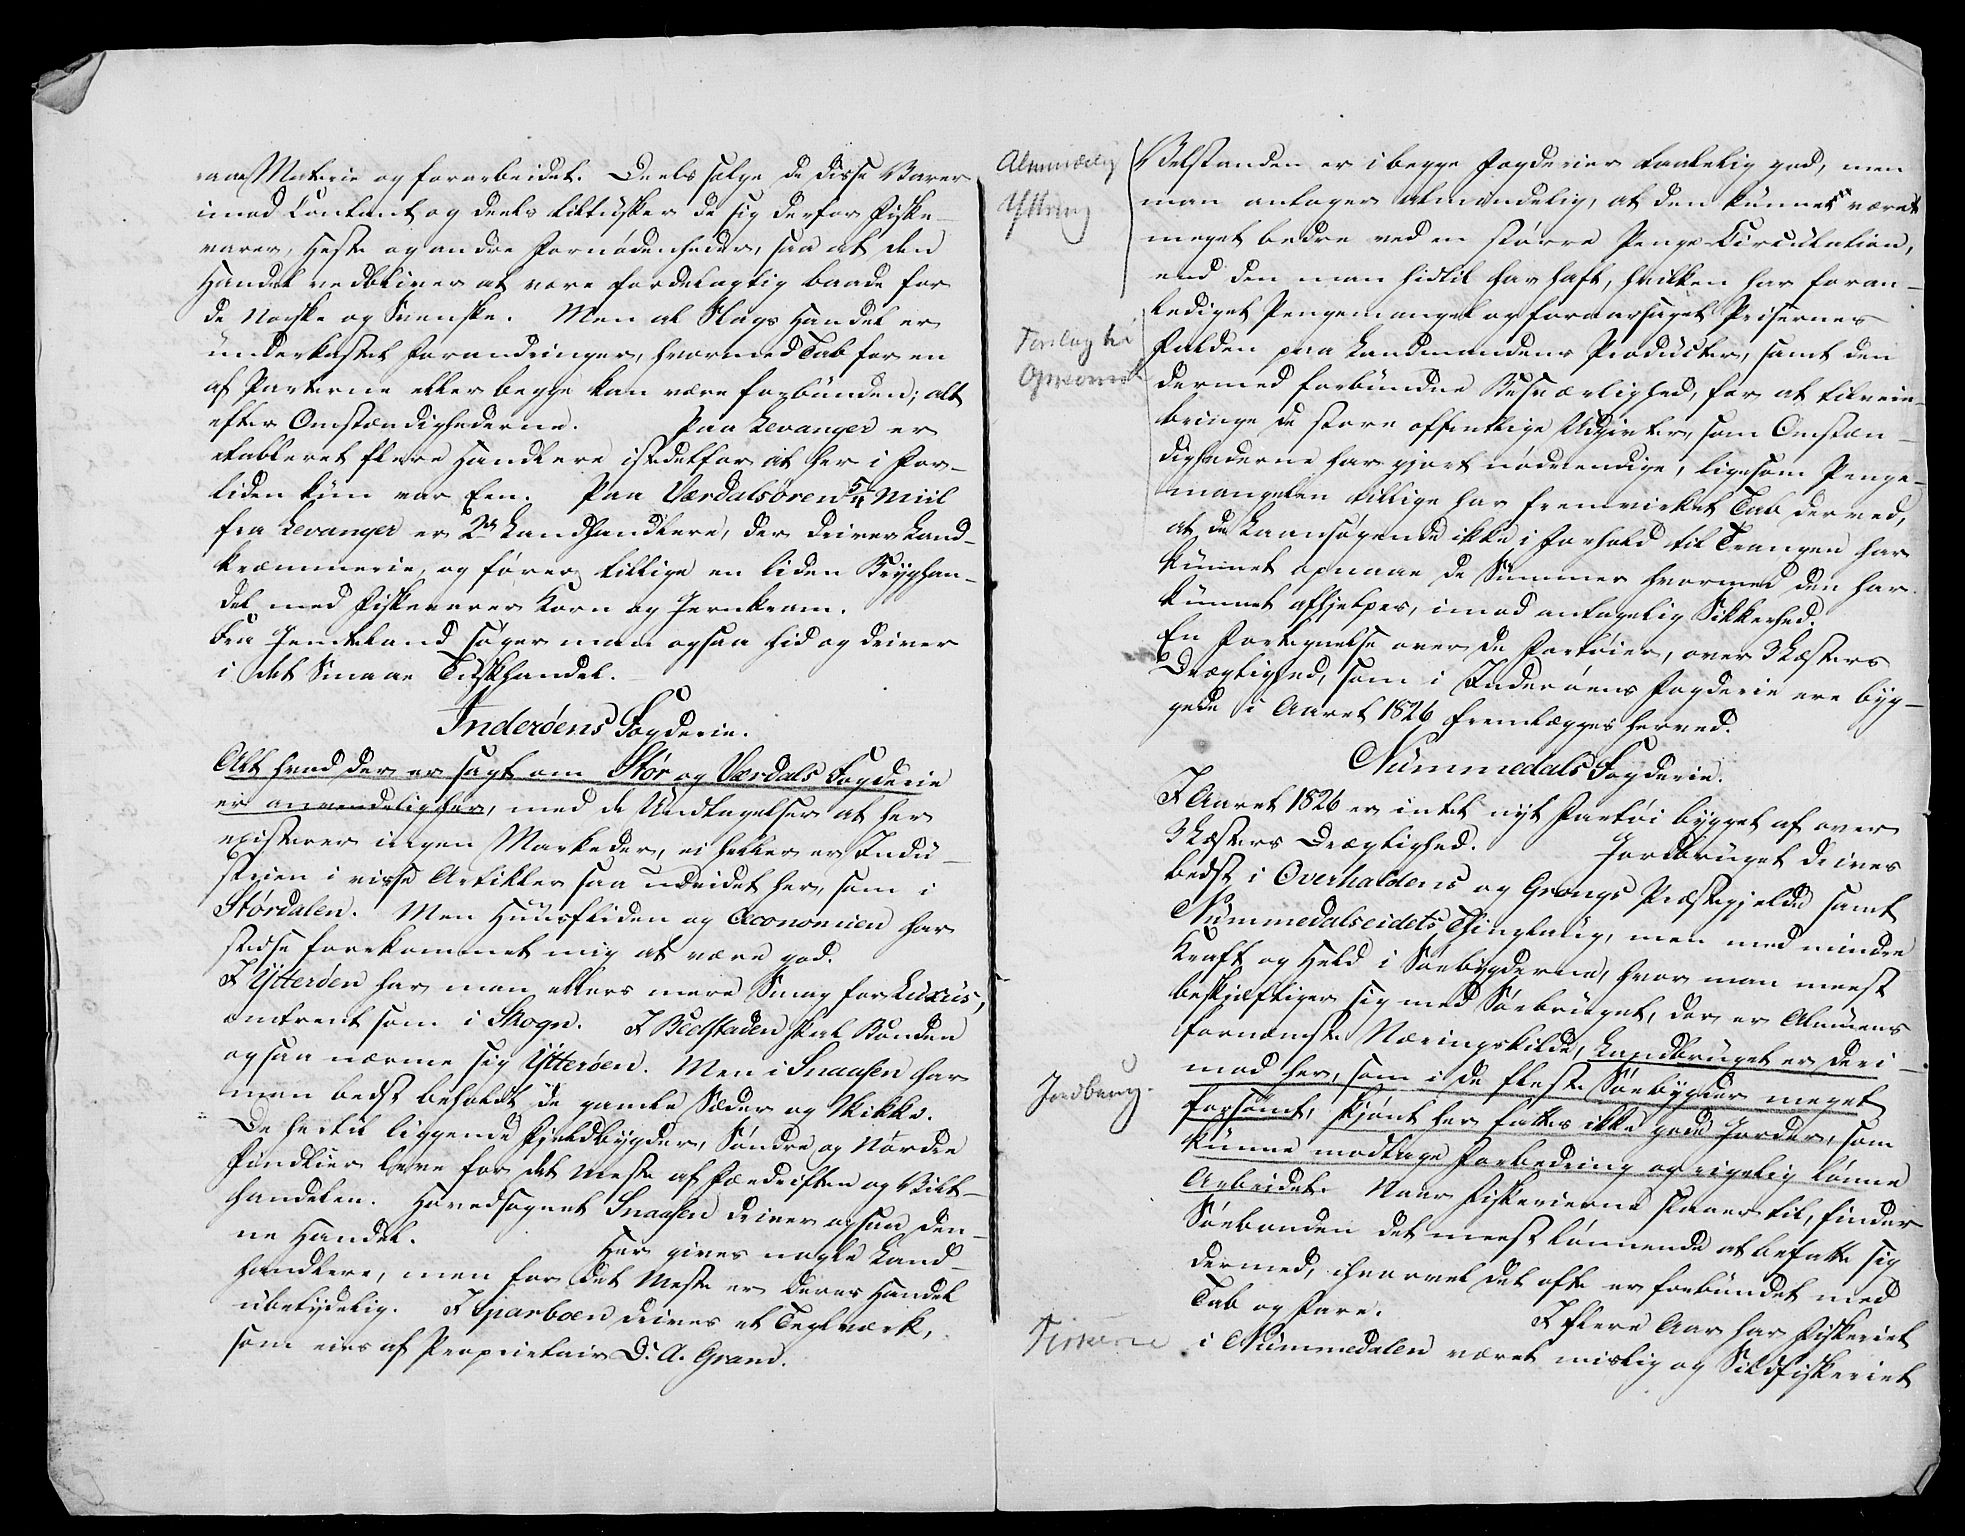 raae Materie og forarbeidet. Deels sælge de disse Varer
imod Contant og deels tiltusker de sig derfor Fiske-
varer, Heste og andre Fornødenheder, saa at den
Handel vedbliver at være fordelagtig baade for
de Norske og Svenske. Men al Slags Handel er
underkastet Forandringer, hvormed Tab for en
af Parterne eller begge kan være forbunden; alt
efter Omstændighederne. Paa Levanger er
etableret flere Handlere istedetfor at her i For-
tiden kun var Een. Paa Værdalsøren 5/4 Miil
fra Levanger er 2de Landhandlere, der driver Land-
kræmmerie, og fører tillige en liden Bryghan-
del med Fiskevarer Korn og Jernkram.
Fra Jemteland søger man ogsaa hid og driver
i det Smaae Tuskhandel.
Inderøens Fogderie.
Alt hvad der er sagt om Stør og Værdals Fogderie
er anvendelig her, med de Undtagelser at her
existerer ingen Markeder, ei heller er Indu-
strien i visse Artikler saa udvidet her, som i
Størdalen. Men Huusfliden og Oeconomien har
stedse forekommet mig at være god.
I Ytterøen har man ellers mere Smag for Luxus,
omtrent som i Skogn. I Bedstaden skal Bonden
ogsaa nærme sig Ytterøen. Men i Snaasen har
man bedst beholdt de gamle Sæder og Skikke.
De hertil liggende Fjeldbygder, Søndre og Nordre
Finlier leve for det meste af Fædriften og Vildt-
handelen. Hovedsognet Snaasen driver ogsaa den-
ne Handel. Her gives nogle Land-
handlere, men for det Meste er deres Handel
ubetydelig. I Sparboen drives et Teglværk,
som eies af Proprietair D. A. Grand.
Almindelig
Yttring
Velstanden er i begge Fogderier taalelig god, men
man antager almindelig, at den kunnet være
meget bedre ved en større Penge Circulation,
end den man hidtil har haft, hvilken har foran-
lediget Pengemangel og foraarsaget Prisernes
Forslag til
Falden paa Landmandens Producter, samt den
Opkomst
dermed forbundne Besværlighed, for at tilveie-
bringe de store offentlige Udgivter, som Omstæn-
dighederne har gjort nødvendige, ligesom Penge-
mangelen tillige har fremvirket Tab derved,
at de Laansøgende ikke i Forhold til Trangen har
kunnet opnaae de Summer hvormed den har
kunnet afhjelpes, imod antagelig Sikkerhed.
En Fortegnelse over de Fartøier, over 3 Læsters
Drægtighed, som i Inderøens Fogderie ere byg-
gede i Aaret 1826 fremlægges herved.
Nummedals Fogderie.
I Aaret 1826 er intet nyt Fartøi bygget af over
3 Læsters Drægtighed. Jordbruget drives
bedst i Overhaldens og Grongs Præstegjelde samt
Nummedalseidets Thinglaug, men med mindre
Kraft og Held i Søebygderne, hvor man meest
beskjæftiger sig med Søebruget, der er Almuens
fornemste Næringskilde, Landbruget er deri-
mod her, som i de fleste Søebygder meget
Jordbrug.
forsømt, skjønt her fattes ikke gode Jorder, som
kunne modtage Forbedring og rigelig lønne
Arbeidet. Naar Fiskerierne staaer til, finder
Søebonden det meest lønnende at befatte sig
dermed, ihvorvel det ofte er forbundet med
Tab og Fare. I flere Aar har Fiskeriet
Fiskerie
i Nummedalen været mislig og Sildfiskeriet